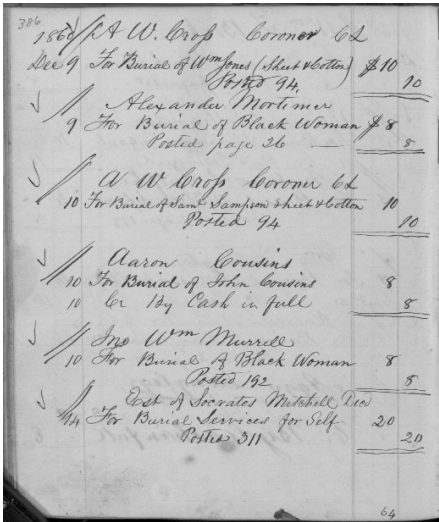 386
1866 A W. Cross Coroner CL
Dec 9 For Burial of Wm Jones (Sheet & Cotton) $10
Posted 94. 10
Alexander Mortimer
9 For Burial of Black Woman $8
Posted page 26 — 8
A W Cross Coroner CL
10 For Burial of Saml Sampson Sheet & Cotton 10
Posted 94 10
Aaron Cousins
10 For Burial of John Cousins 8
10 Cr By Cash in full 8
Jno Wm Murrell
10 For Burial of Black Woman 8
Posted 192 8
Est of Socrates Mitchell Decd
14 For Burial Services for Self 20
Posted 311 20
64